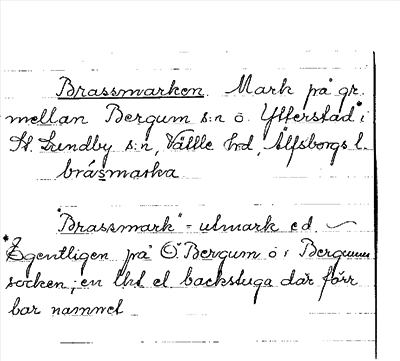 Brassmarken. Mark på gr.
mellan Bergum s:n o. Ytterstad i
St. Lundby s:n, Vättle hd, Älfsborgs l.
bråsmarka
"Brassmark" - utmark
"Egentligen på Ö. Bergum o i Bergums
socken; en lht el backstuga där förr
bar namnet